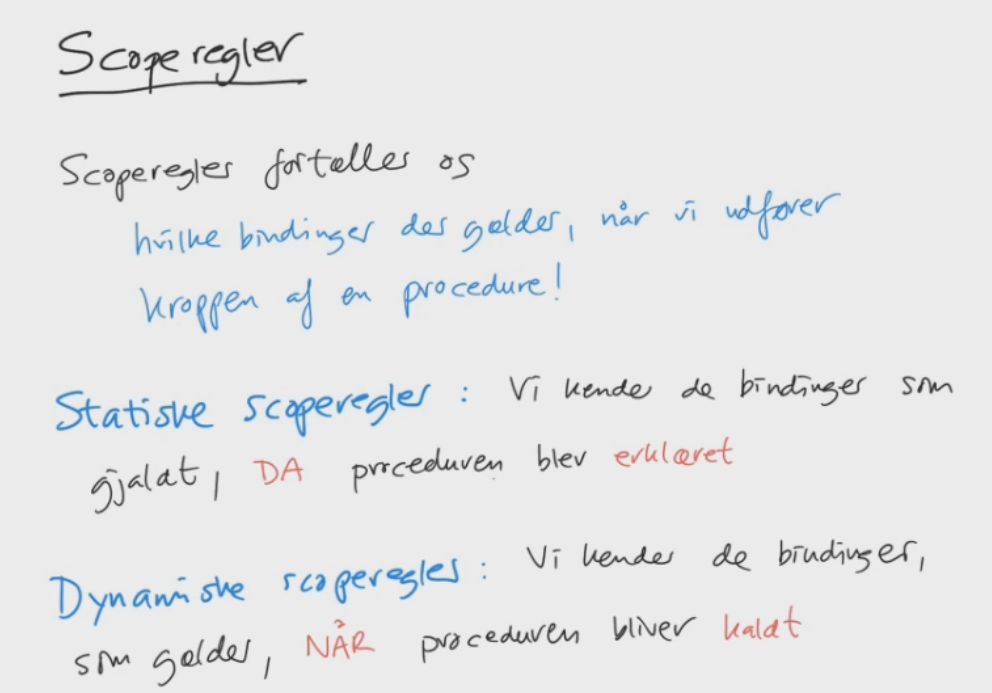 Scoperegler
Scoperegler fortæller os
hvilke bindinger der gælder, når vi udfører
kroppen af en procedure!
Statiske scoperegler : Vi kender de bindinger som
gjaldt, DA proceduren blev erklæret
Dynamiske scoperegler : Vi kender de bindinger,
som gælder, NÅR proceduren bliver kaldt